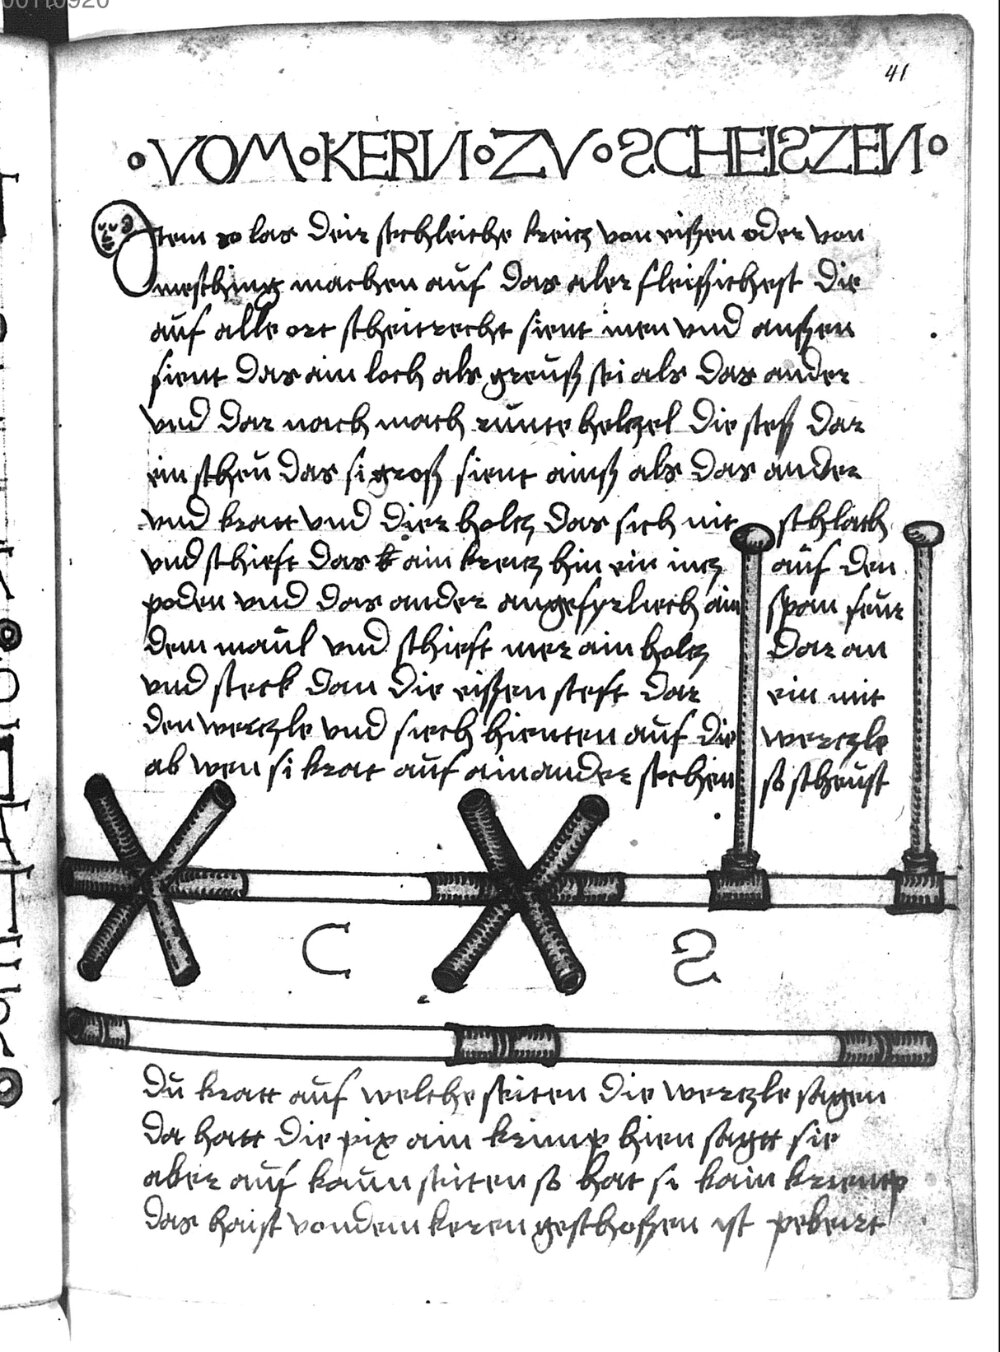 41
VOM KERN ZV SCHEISZEN
Item so las dein stehleiche kreicz von eisßen oder von
mesthing machen auf das aler fleißichest die
auf alle ort scheitrecht sient inen vnd aussen
sient das ain loch als greuß sei als das ander
vnd dar nach mach runte holczel die steß dar
ein scheu das si groß sient ainß als das ander
vnd kratt vnd dier holcz das sich nit schlach
vnd schieft das ain kreicz hin ein incz auf den
poden vnd das ander angefyrlich ain span feur
dem maul vnd schieft mer ain holcz dar an
vnd steck dan die eisßen steft dar ein mit
den werczle vnd siech hienten auf die werczle
ab wen si krat auf ainander stehen so scheust
C
S
du kratt auf welche seiten die werczle sagen
da hatt die pix ain krimp hien sagtt sie
aber auf kaun seiten so hat si kain kriemp
das haist von dem keren geschossen ist pebert